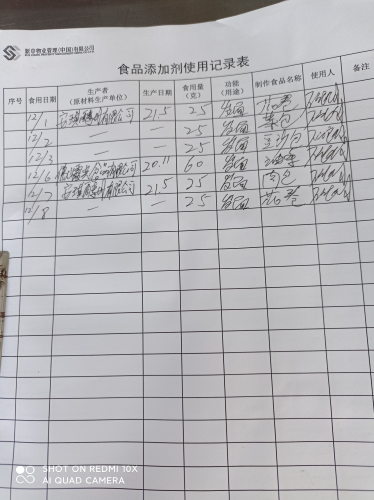 新中物业管理(中国)有限公司
食品添加剂使用记录表
序号 食用日期 生产者（原材料生产单位） 生产日期 食用量（克） 功能（用途） 制作食品名称 使用人 备注
12/1 安琪酵母有限公司 21.5 25 发面 花卷
12/2 — — 25 发面 菜包
12/3 — — 25 发面 豆沙包
12/6 20.11 60 发面 油条
12/7 安琪酵母有限公司 21.5 25 发面 肉包
12/8 — — 25 发面 花卷
SHOT ON REDMI 10X
AI QUAD CAMERA